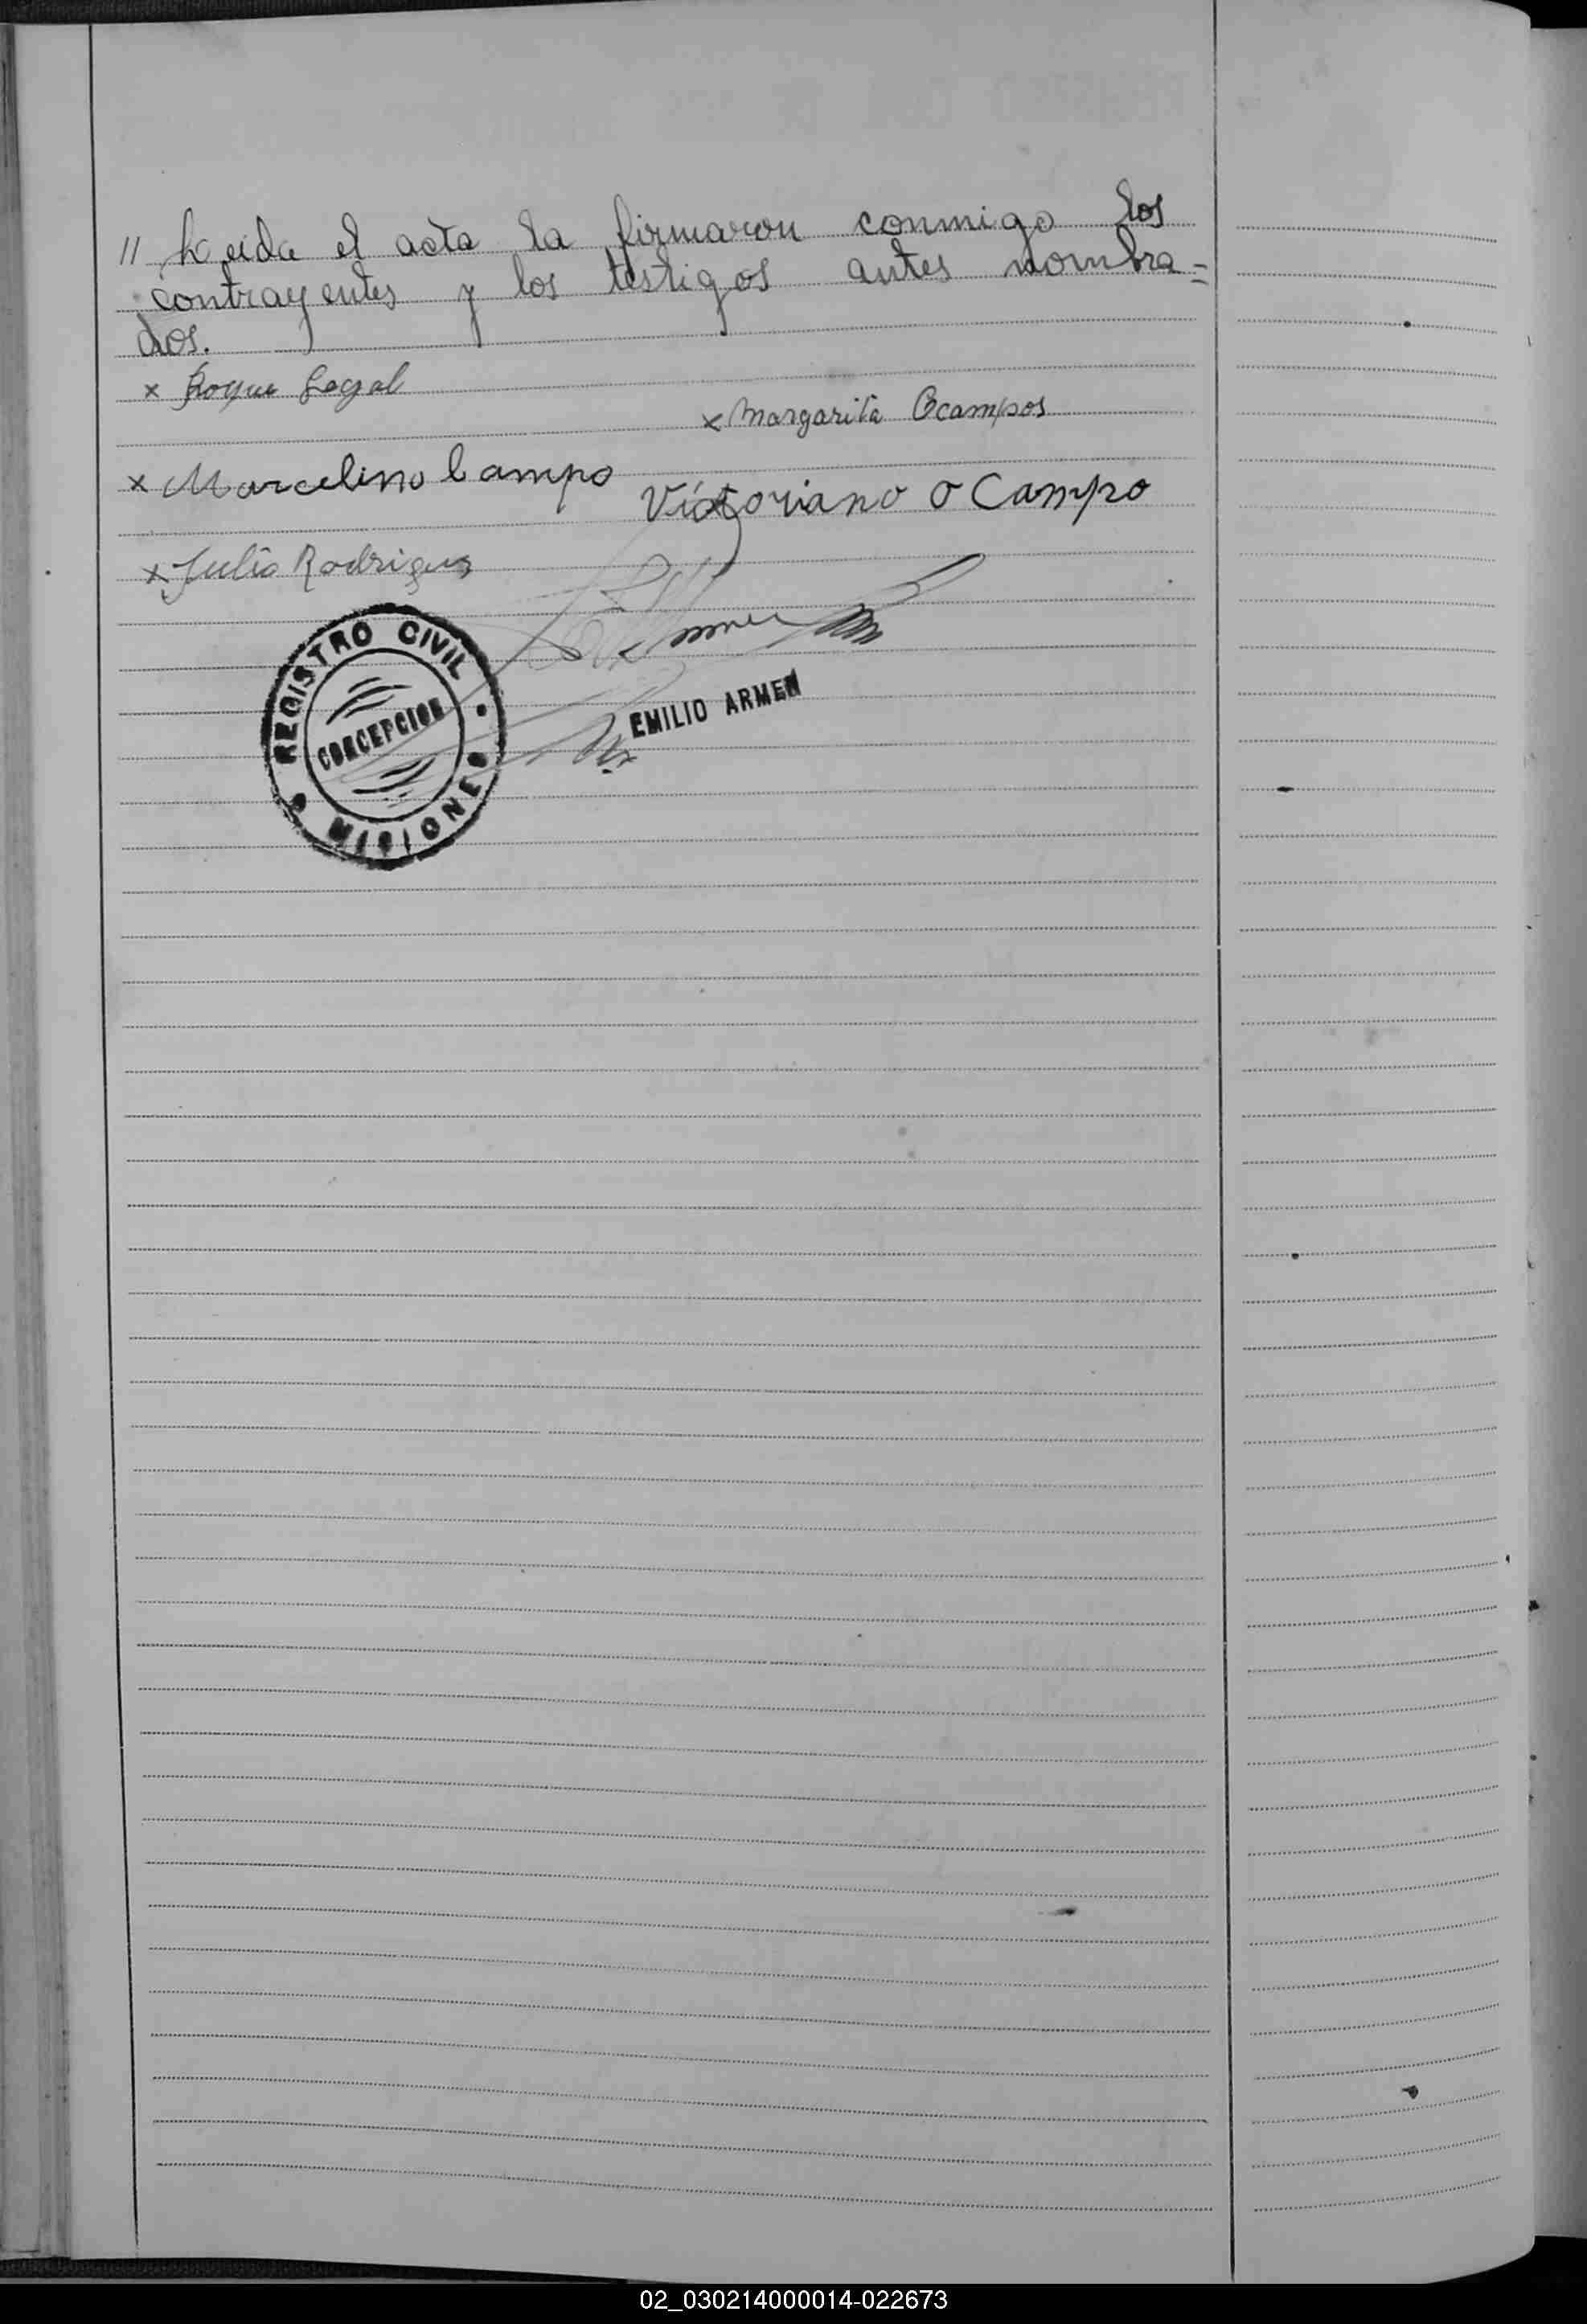 // Leida el acta la firmaron conmigo los
contrayentes y los testigos antes nombra=
dos.
x Roque Legal
x Margarita Ocampos
x Marcelino Campo
Victoriano O Campo
x Julio Rodrigues
REGISTRO CIVIL
CONCEPCION
MISIONES
EMILIO ARMEN
02_030214000014-022673